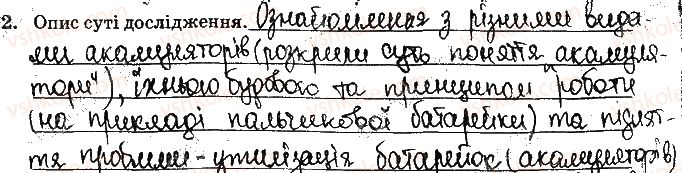 2. Опис суті дослідження. Ознайомлення з різними вида-
ми акамуляторів (розкрили суть поняття „акамуля-
тори"), їхнього будового та принципом роботи
(на прикладі пальчикової батарейки) та підняt-
тя проблими-утилізація батарейок (акамуляторів)